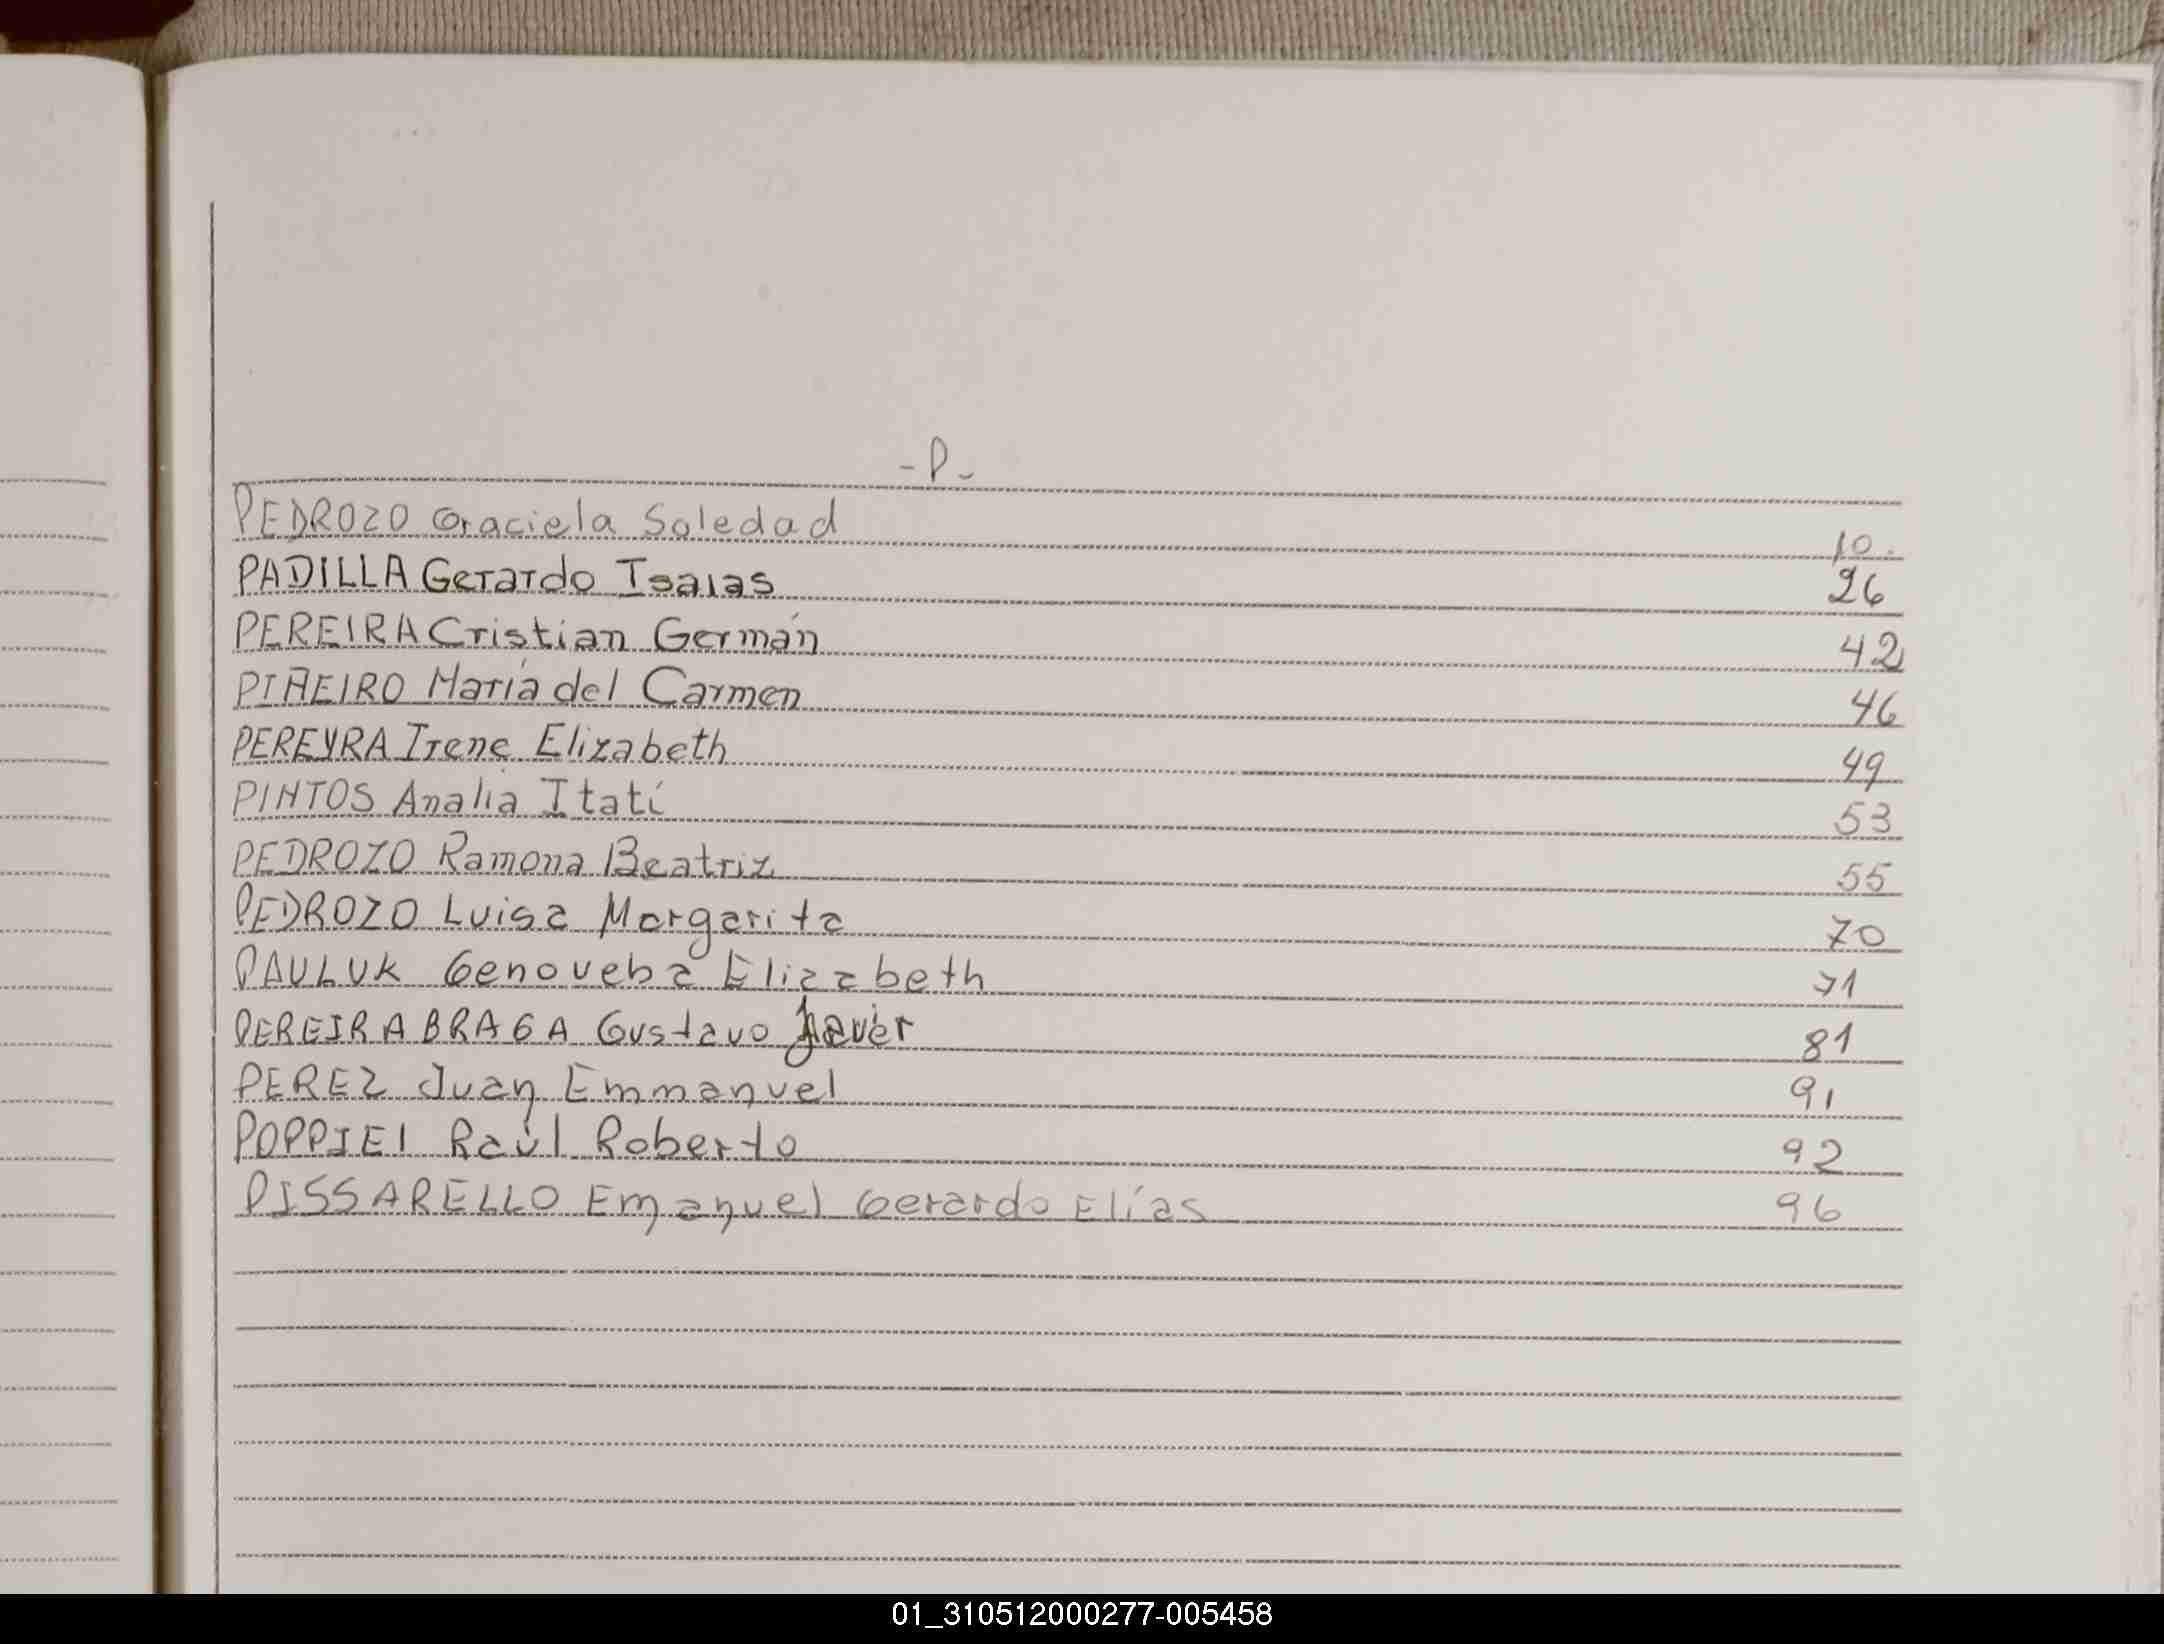 -P-
PEDROZO Graciela Soledad 10.
PADILLA Gerardo Isaias 26
PEREIRA Cristian Germán 42
PIÑEIRO María del Carmen 46
PEREYRA Irene Elizabeth 49
PINTOS Analía Itatí 53
PEDROZO Ramona Beatriz 55
PEDROZO Luisa Margarita 70
PAULUK Genoveba Elizabeth 71
PEREIRA BRAGA Gustavo Javier 81
PEREZ Juan Emmanuel 91
POPPIEl Raúl Roberto 92
PISSARELLO Emanuel Gerardo Elías 96
01_310512000277-005458